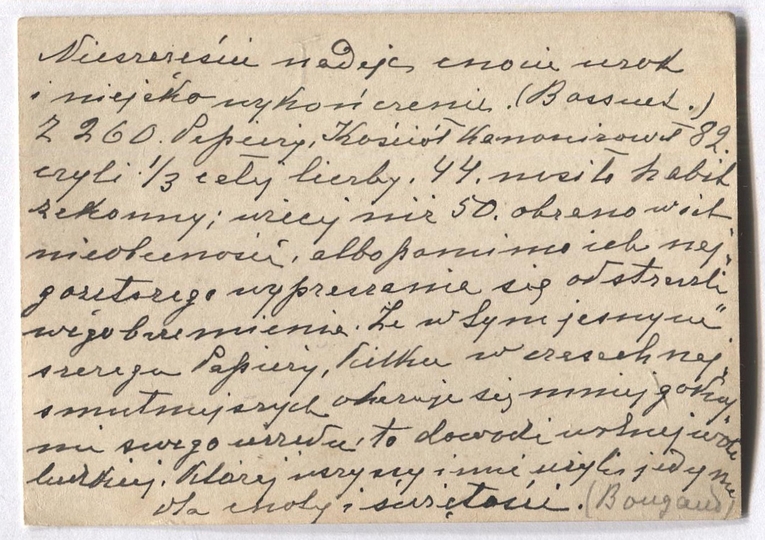 Nieszczęście nadaje cnocie urok
i niejako wykończenie. (Bossuet.)
Z 260. Papieży, Kościół kanonizował 82.
czyli 1/3 całej liczby. 44. nosiło habit
zakonny; więcej niż 50. obrano w ich
nieobecności, albo pomimo ich naj„
gorętszego wypraszania się od straszli„
wego brzemienia. Że w tym jasnym
szeregu Papieży, kilku w czasach naj„
smutniejszych okazuje się mniej godny„
mi swego urzędu, to dowodzi wolnej woli
ludzkiej, której wszyscy inni użyli jedynie
dla cnoty i świętości. (Bougaud)